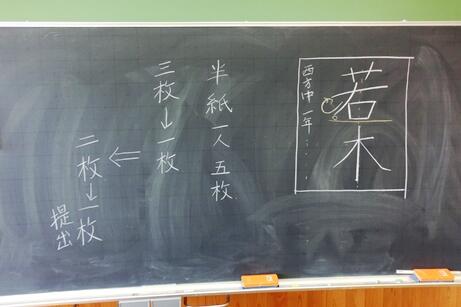 若木
西方中一年……
半紙一人五枚
三枚→一枚
⇐
二枚→一枚
提出